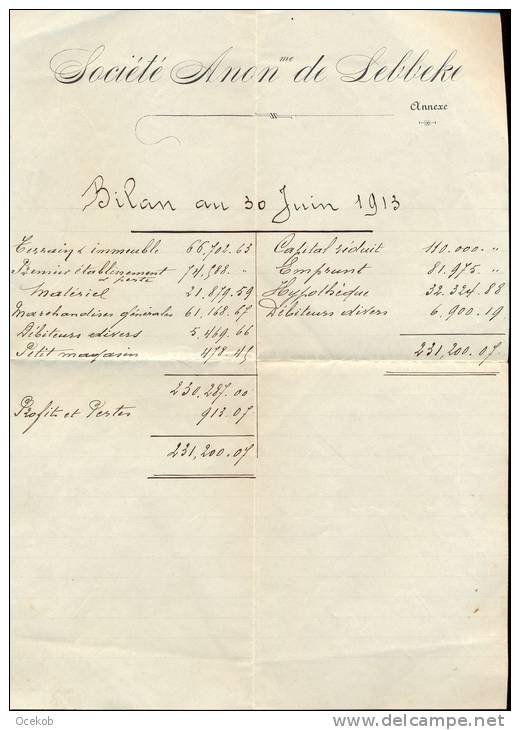 Société Anon^me de Lebbeke
Annexe
Bilan au 30 Juin 1913
Terrain & immeuble 66,702.63
Premier établissement à perte 74,588 "
Matériel 21,879.59
Marchandises générales 61,168.67
Débiteurs divers 5,469.66
Petit magasin 478.45
230,287.00
Profits et Pertes 913.07
231,200.07
Capital réduit 110.000. "
Emprunt 81.975. "
Hypothèque 32.324.88
Débiteurs divers 6,900.19
231,200.07
Ocekob
http://www.delcampe.net